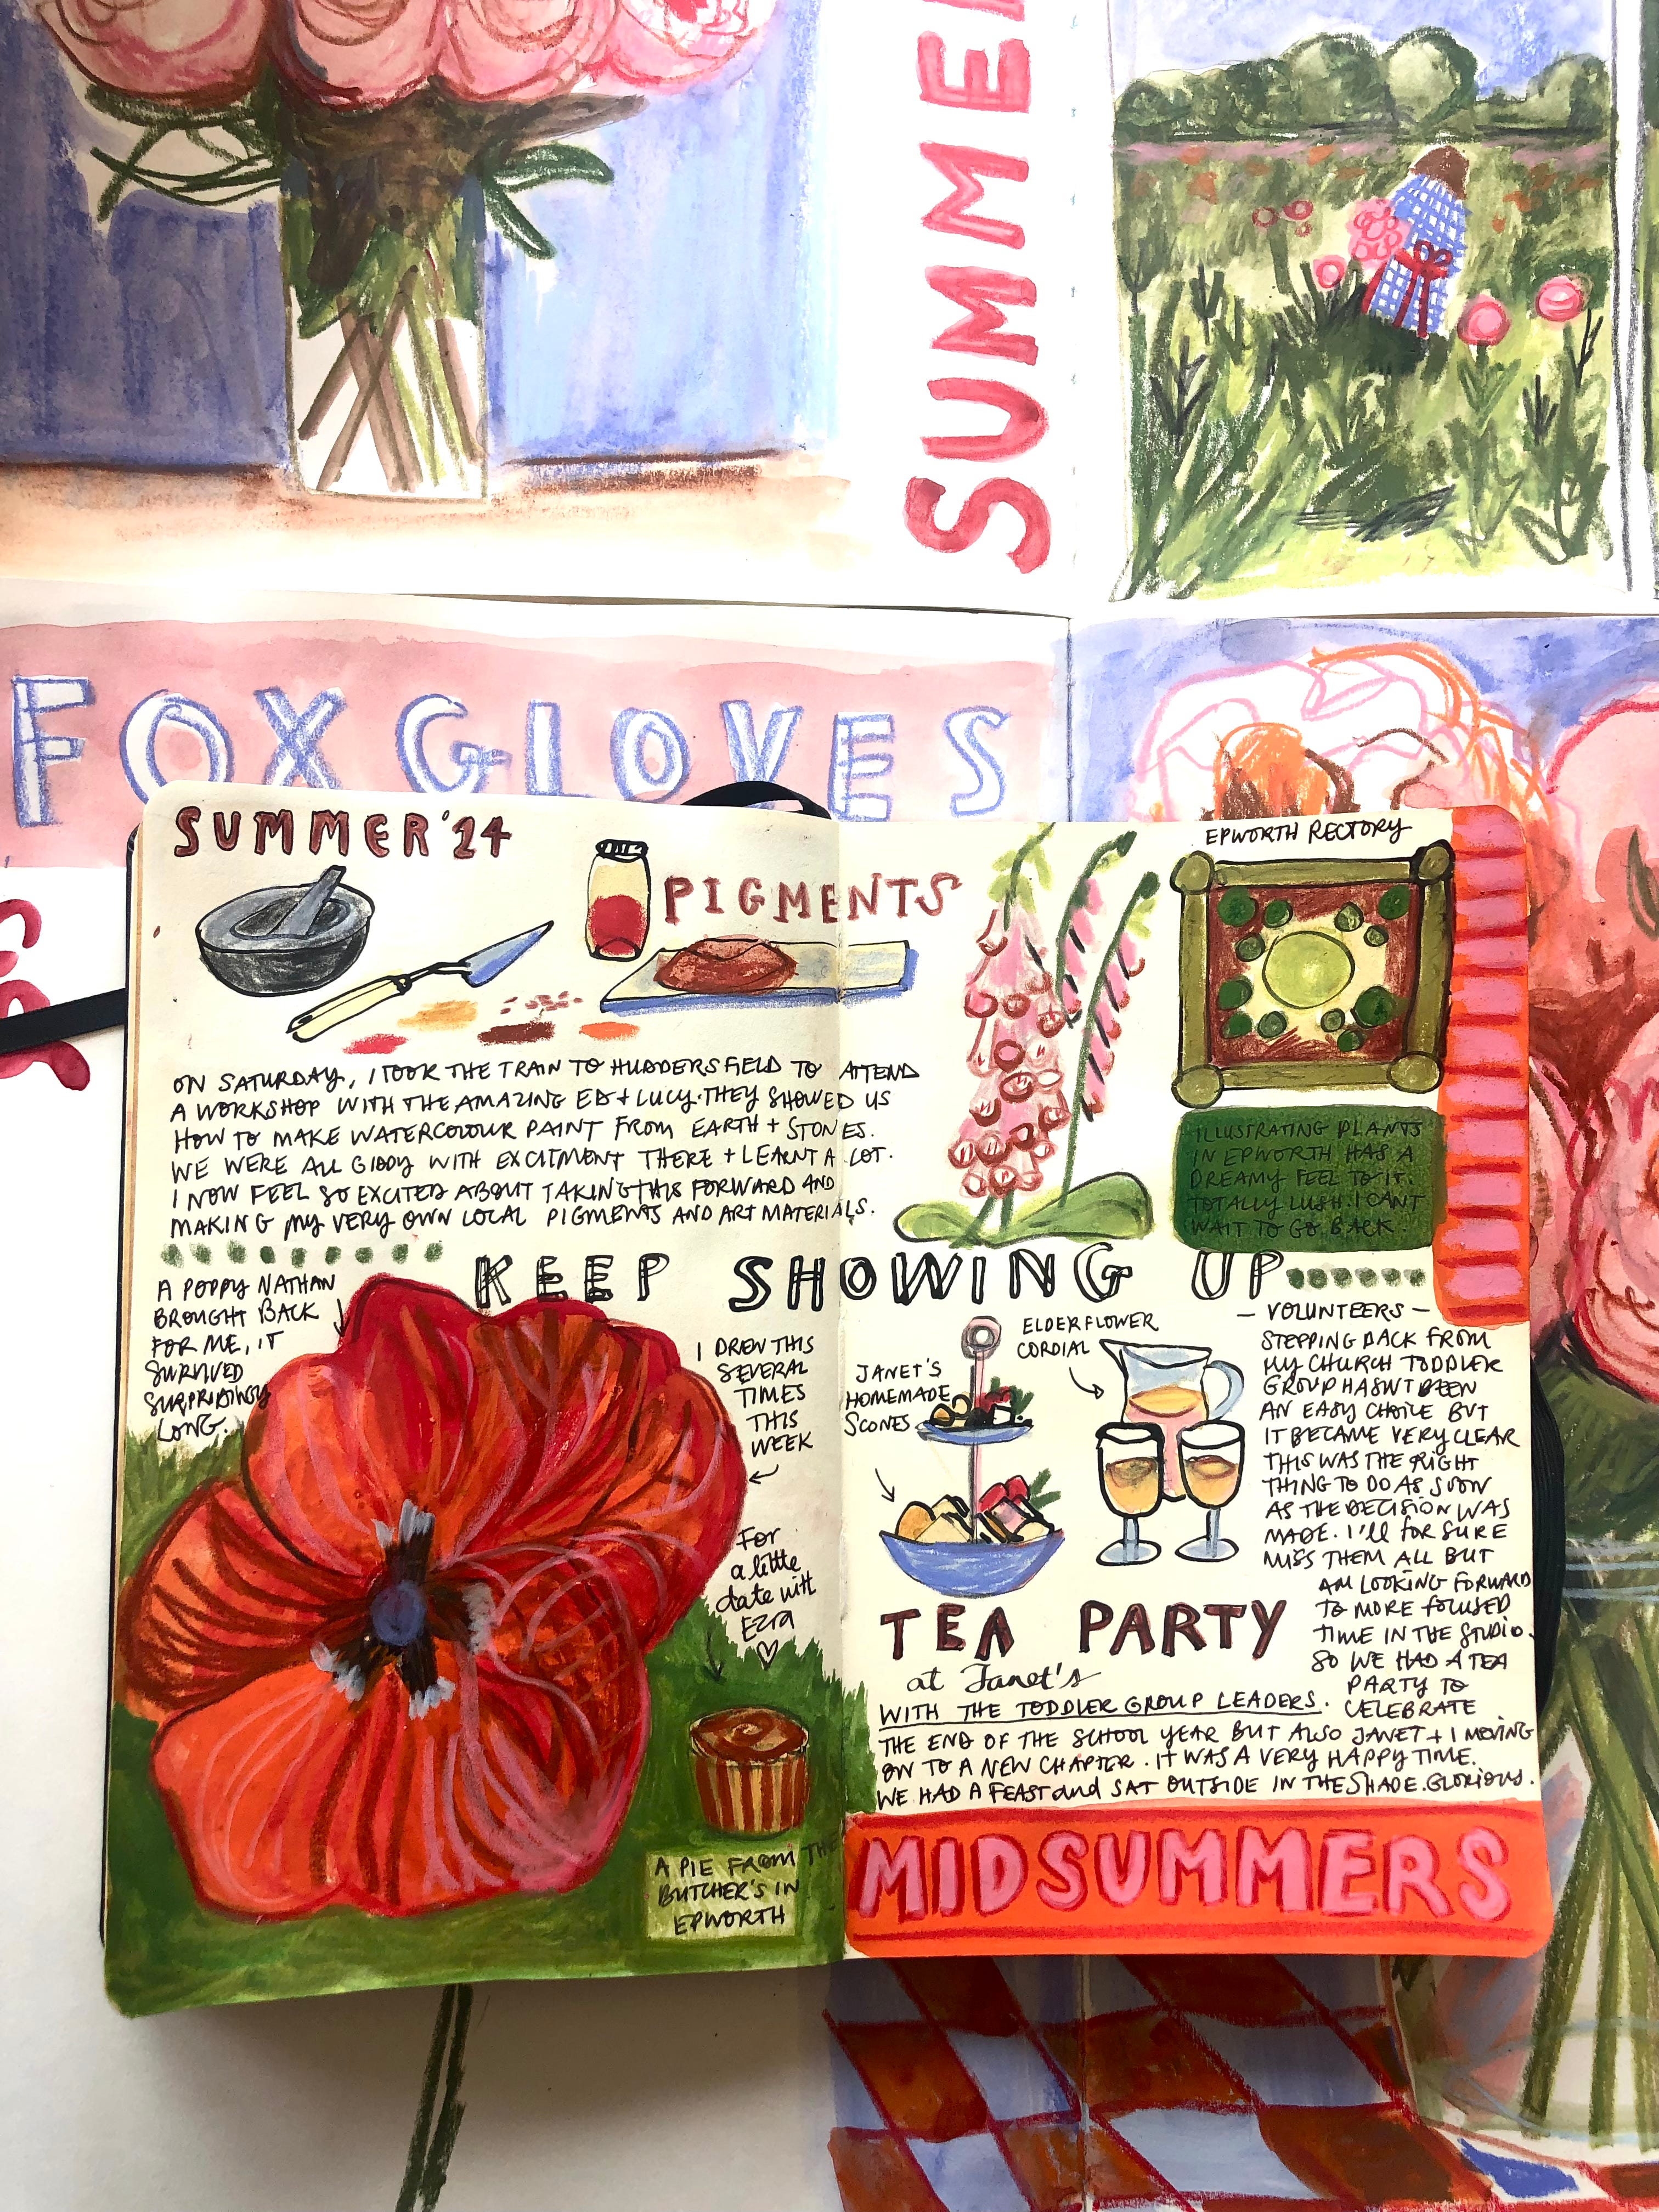 SUMME
FOXGLOVES
SUMMER '24
PIGMENTS
ON SATURDAY, I TOOK THE TRAIN TO HUDDERSFIELD TO ATTEND
A WORKSHOP WITH THE AMAZING ED + LUCY. THEY SHOWED US
HOW TO MAKE WATERCOLOUR PAINT FROM EARTH + STONES.
WE WERE ALL GIDDY WITH EXCITMENT THERE + LEARNT A LOT.
I NOW FEEL SO EXCITED ABOUT TAKING THIS FORWARD AND
MAKING MY VERY OWN LOCAL PIGMENTS AND ART MATERIALS.
EPWORTH RECTORY
ILLUSTRATING PLANTS
IN EPWORTH HAS A
DREAMY FEEL TO IT.
TOTALLY LUSH. I CAN'T
WAIT TO GO BACK.
KEEP SHOWING UP
A POPPY NATHAN
BROUGHT BACK
FOR ME, IT
SURVIVED
SURPRISINGLY
LONG.
I DREW THIS
SEVERAL
TIMES
THIS
WEEK
For
a little
date with
Ezra
A PIE FROM THE
BUTCHER'S IN
EPWORTH
JANET'S
HOMEMADE
SCONES
ELDERFLOWER
CORDIAL
TEA PARTY
at Janet's
WITH THE TODDLER GROUP LEADERS.
– VOLUNTEERS –
STEPPING BACK FROM
MY CHURCH TODDLER
GROUP HASN'T BEEN
AN EASY CHOICE BUT
IT BECAME VERY CLEAR
THIS WAS THE RIGHT
THING TO DO AS SOON
AS THE DECISION WAS
MADE. I'll FOR SURE
MISS THEM ALL BUT
AM LOOKING FORWARD
TO MORE FOCUSED
TIME IN THE STUDIO.
SO WE HAD A TEA
PARTY TO
CELEBRATE
THE END OF THE SCHOOL YEAR BUT ALSO JANET + I MOVING
ON TO A NEW CHAPTER. IT WAS A VERY HAPPY TIME.
WE HAD A FEAST and SAT OUTSIDE IN THE SHADE. GLORIOUS.
MIDSUMMERS